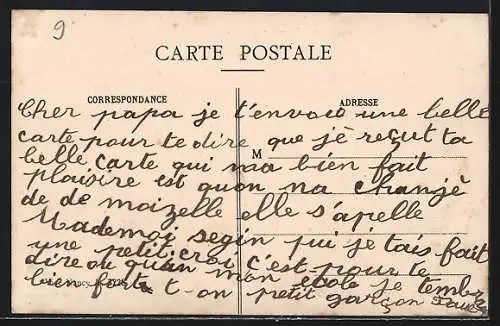 9
CARTE POSTALE
CORRESPONDANCE
ADRESSE
Cher papa je t'envoie une belle
carte pour te dire que jè reçut ta
M
belle carte qui ma bien fait
plaisire est quon na changè
de de moizelle elle s'apelle
Mademoi segin pui je tais fait
une petit croi c'est pour te
dire ou quan mon ecole je temb
bien fort t-on petit garçon